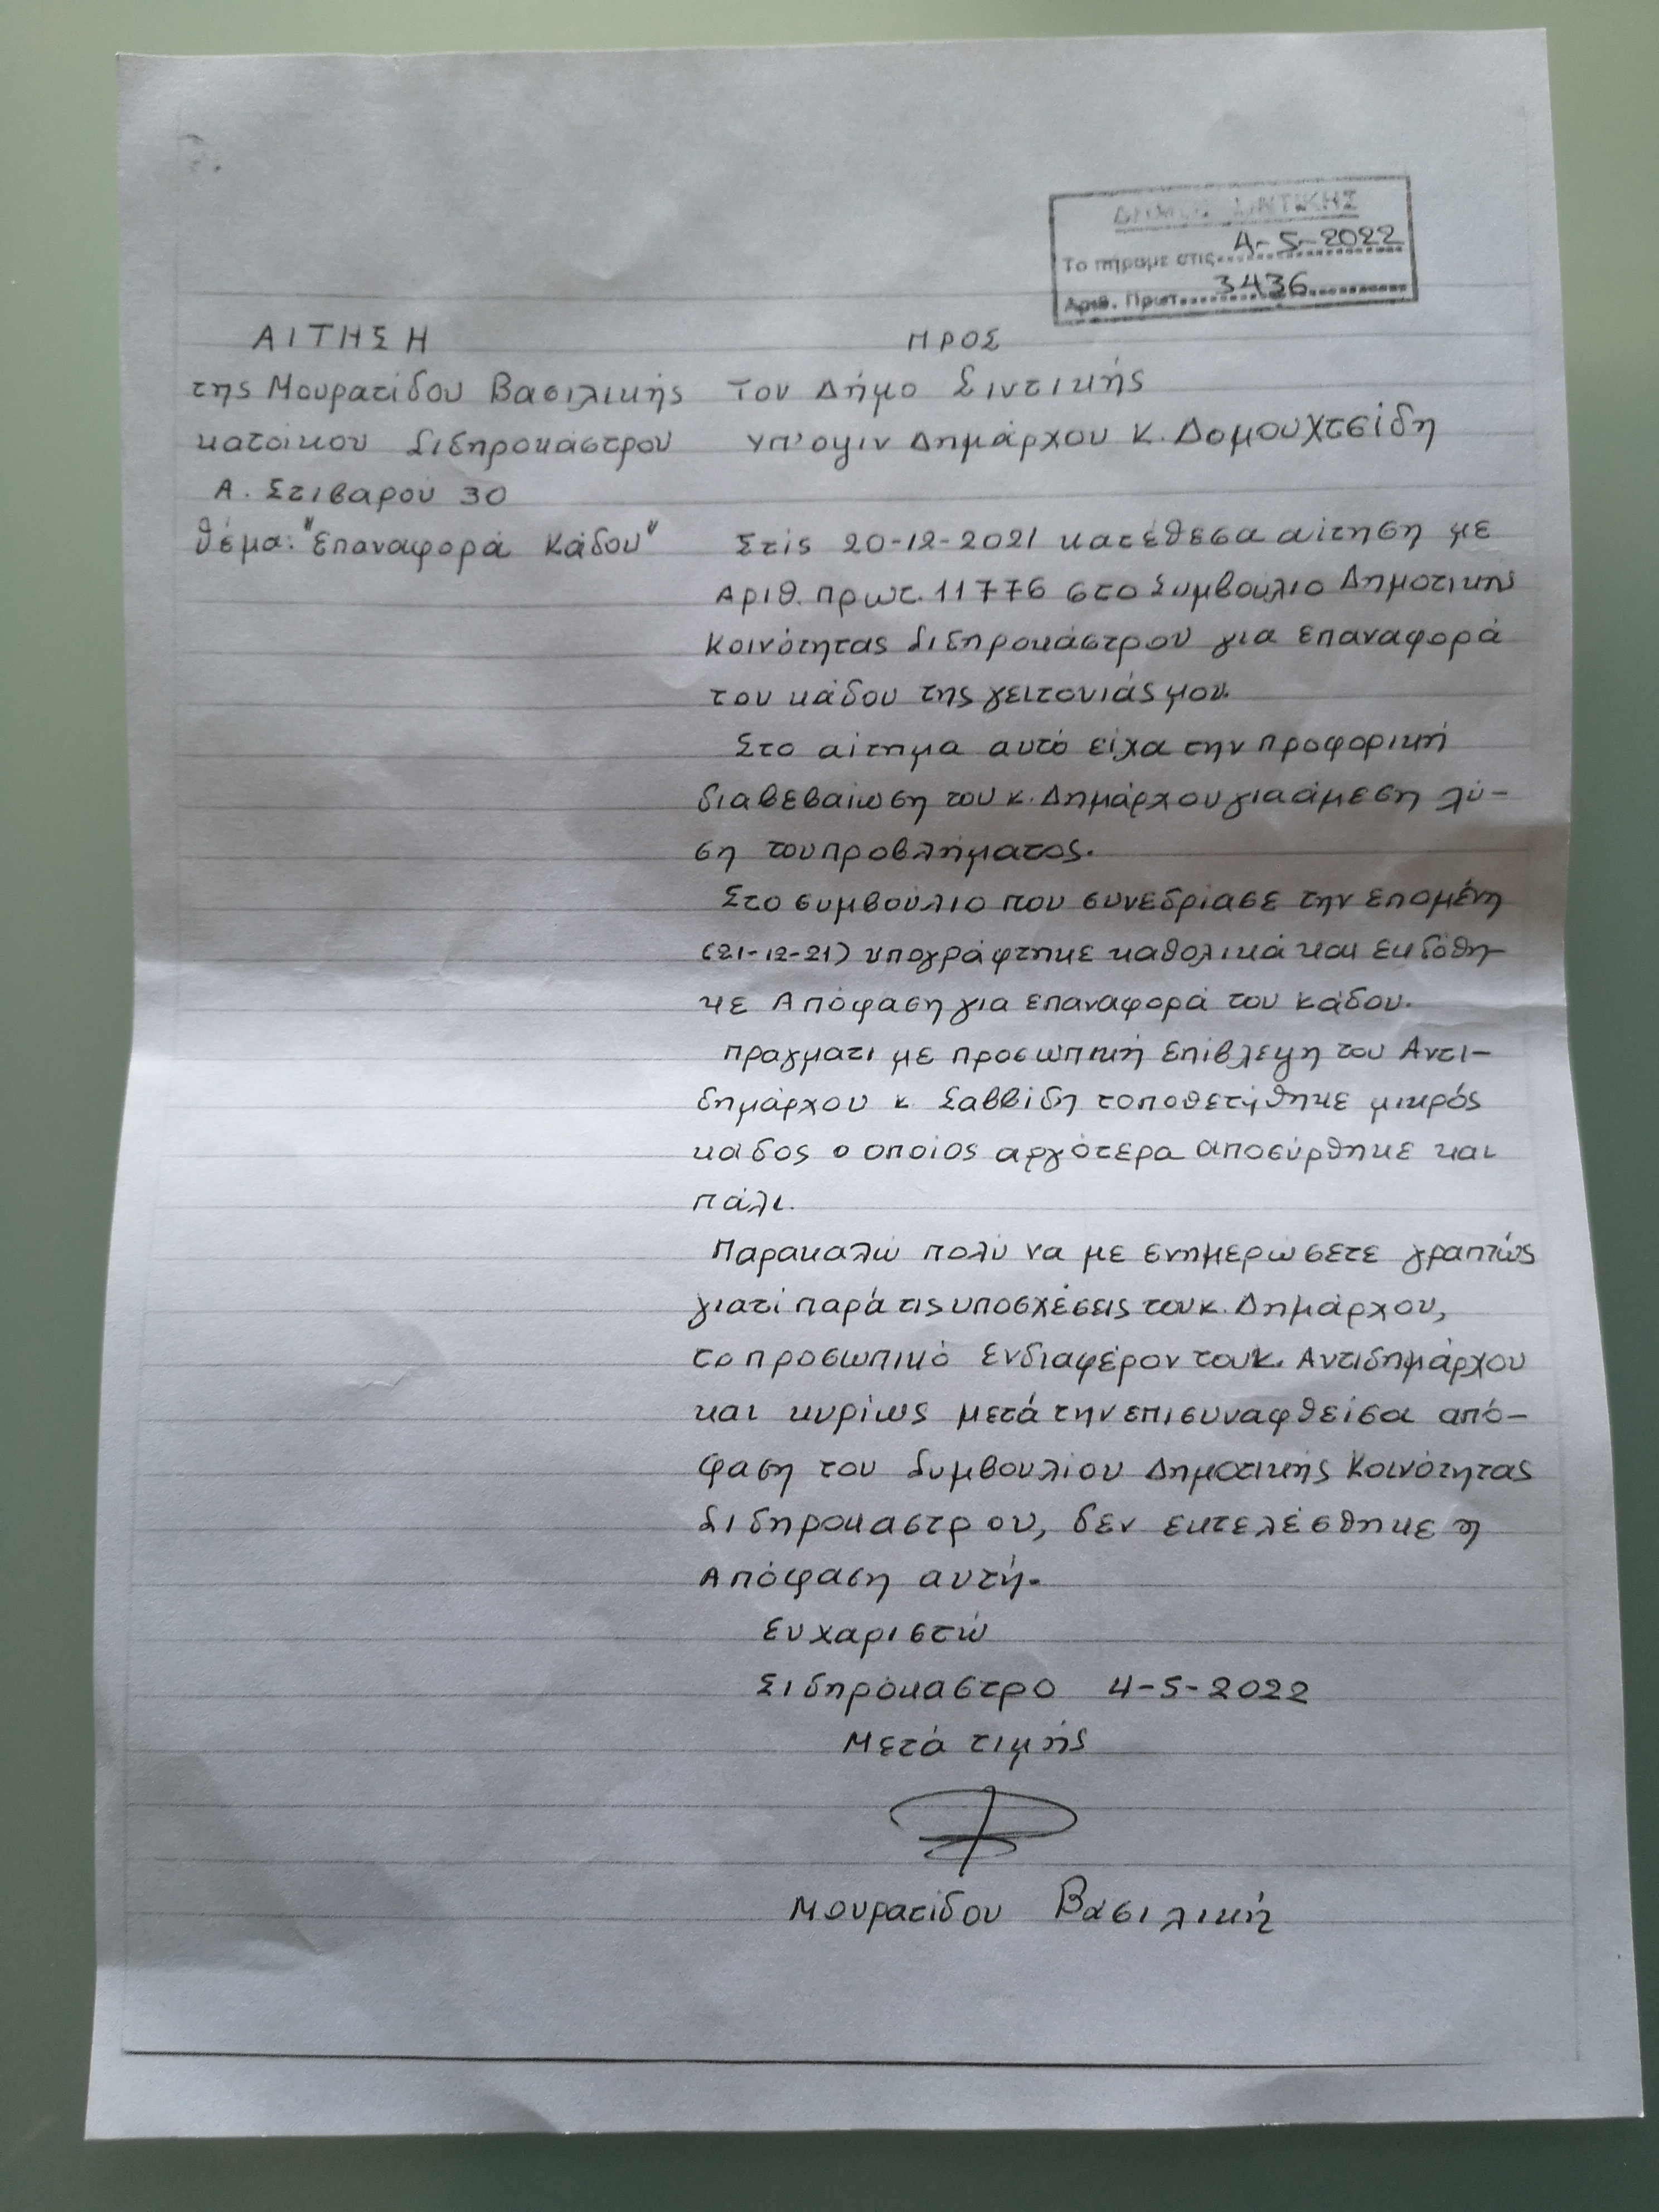 ΔΗΜΟΣ ΣΙΝΤΙΚΗΣ
Το πήραμε στις 4-5-2022
Αριθ. Πρωτ. 3436
ΑΙΤΗΣΗ
της Μουρατίδου Βασιλικής
κατοίκου Σιδηροκάστρου
Α. Στιβαρού 30
Θέμα: "Επαναφορά Κάδου"
ΠΡΟΣ
Τον Δήμο Σιντικής
Υπ'οψιν Δημάρχου κ. Δομουχτσίδη
Στίς 20-12-2021 κατέθεσα αίτηση με
Αριθ. πρωτ. 11776 στο Συμβούλιο Δημοτικής
Κοινότητας Σιδηροκάστρου για επαναφορά
του κάδου της γειτονιάς μου.
Στο αίτημα αυτό είχα την προφορική
διαβεβαίωση του κ. Δημάρχου για άμεση λύ-
ση του προβλήματος.
Στο συμβούλιο που συνεδρίασε την επομένη
(21-12-21) υπογράφτηκε καθολικά και εκδόθη-
κε Απόφαση για επαναφορά του κάδου.
Πραγματι με προσωπική επίβλεψη του Αντι-
δημάρχου κ Σαββίδη τοποθετήθηκε μικρός
καδος ο οποίος αργότερα αποσύρθηκε και
πάλι.
Παρακαλώ πολύ να με ενημερώσετε γραπτώς
γιατί παρά τις υποσχέσεις του κ. Δημάρχου,
το προσωπικό ενδιαφέρον του κ. Αντιδημάρχου
και κυρίως μετά την επισυναφθείσα από-
φαση του Συμβουλίου Δημοτικής Κοινότητας
Σιδηροκαστρου, δεν εκτελέσθηκε η
Απόφαση αυτή.
Ευχαριστώ
Σιδηρόκαστρο 4-5-2022
Μετά τιμής
Μουρατίδου Βασιλική